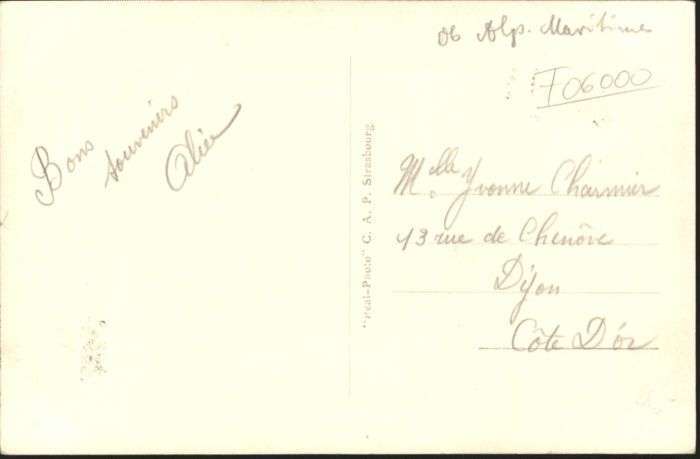 06 Alp. Maritimes
F06000
Bons
souvenirs
"Réal-Photo" C. A. P. Strasbourg
Mlle Yvonne Charmier
13 rue de Chenôve
Dijon
Côte D'or